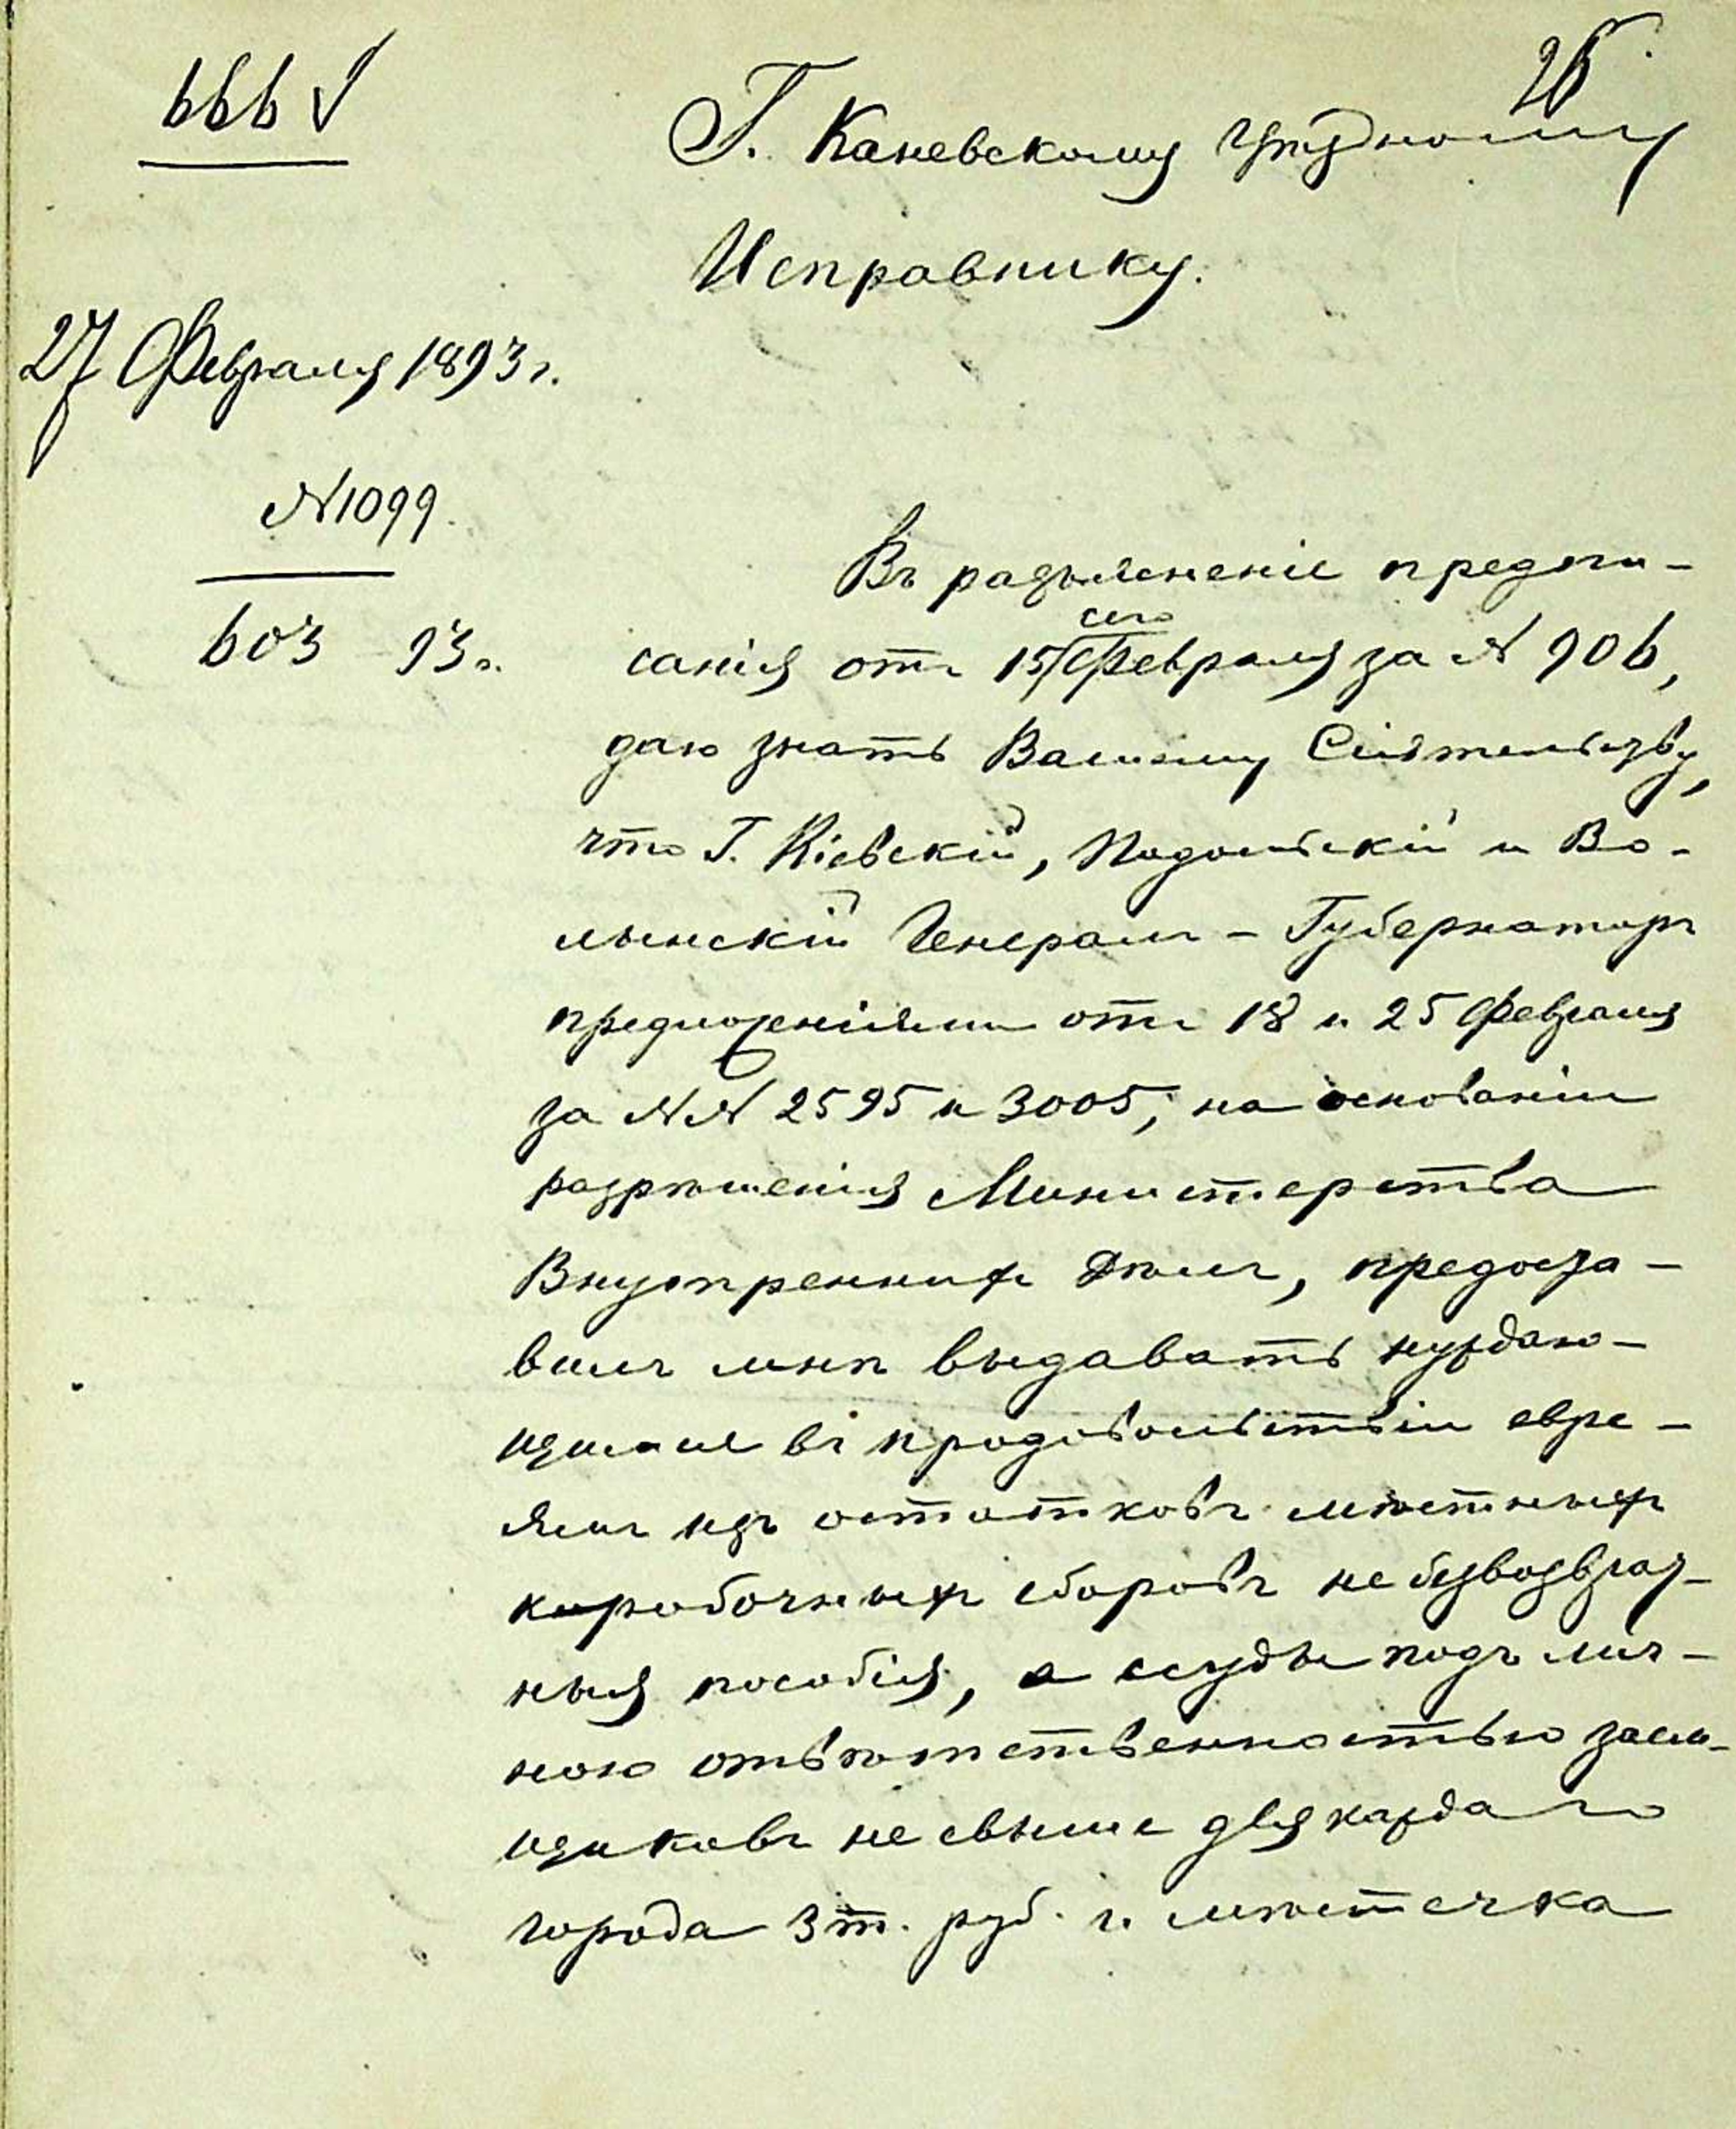 666 V
26
Г. Каневскому Уѣздному
Исправнику.
27 Февраля 1893 г.
№ 1099.
603 93 г.
Въ разъясненіе предпи-
санія отъ 15 сего Февраля за № 906,
даю знать Вашему Сіятельству,
что Г. Кіевскій, Подольскій и Во-
лынскій Генералъ-Губернаторъ
предложеніями отъ 18 и 25 Февраля
за №№ 2595 и 3005, на основаніи
разрѣшенія Министерства
Внутреннихъ Дѣлъ, предоста-
вилъ мнѣ выдавать нуждаю-
щимся въ продовольствіи евре-
ямъ изъ остатковъ мѣстныхъ
коробочныхъ сборовъ не безвозврат-
ныя пособія, а ссуды подъ лич-
ною отвѣтственностью заем-
щиковъ не свыше для каждаго
города 3 т. руб. и мѣстечка